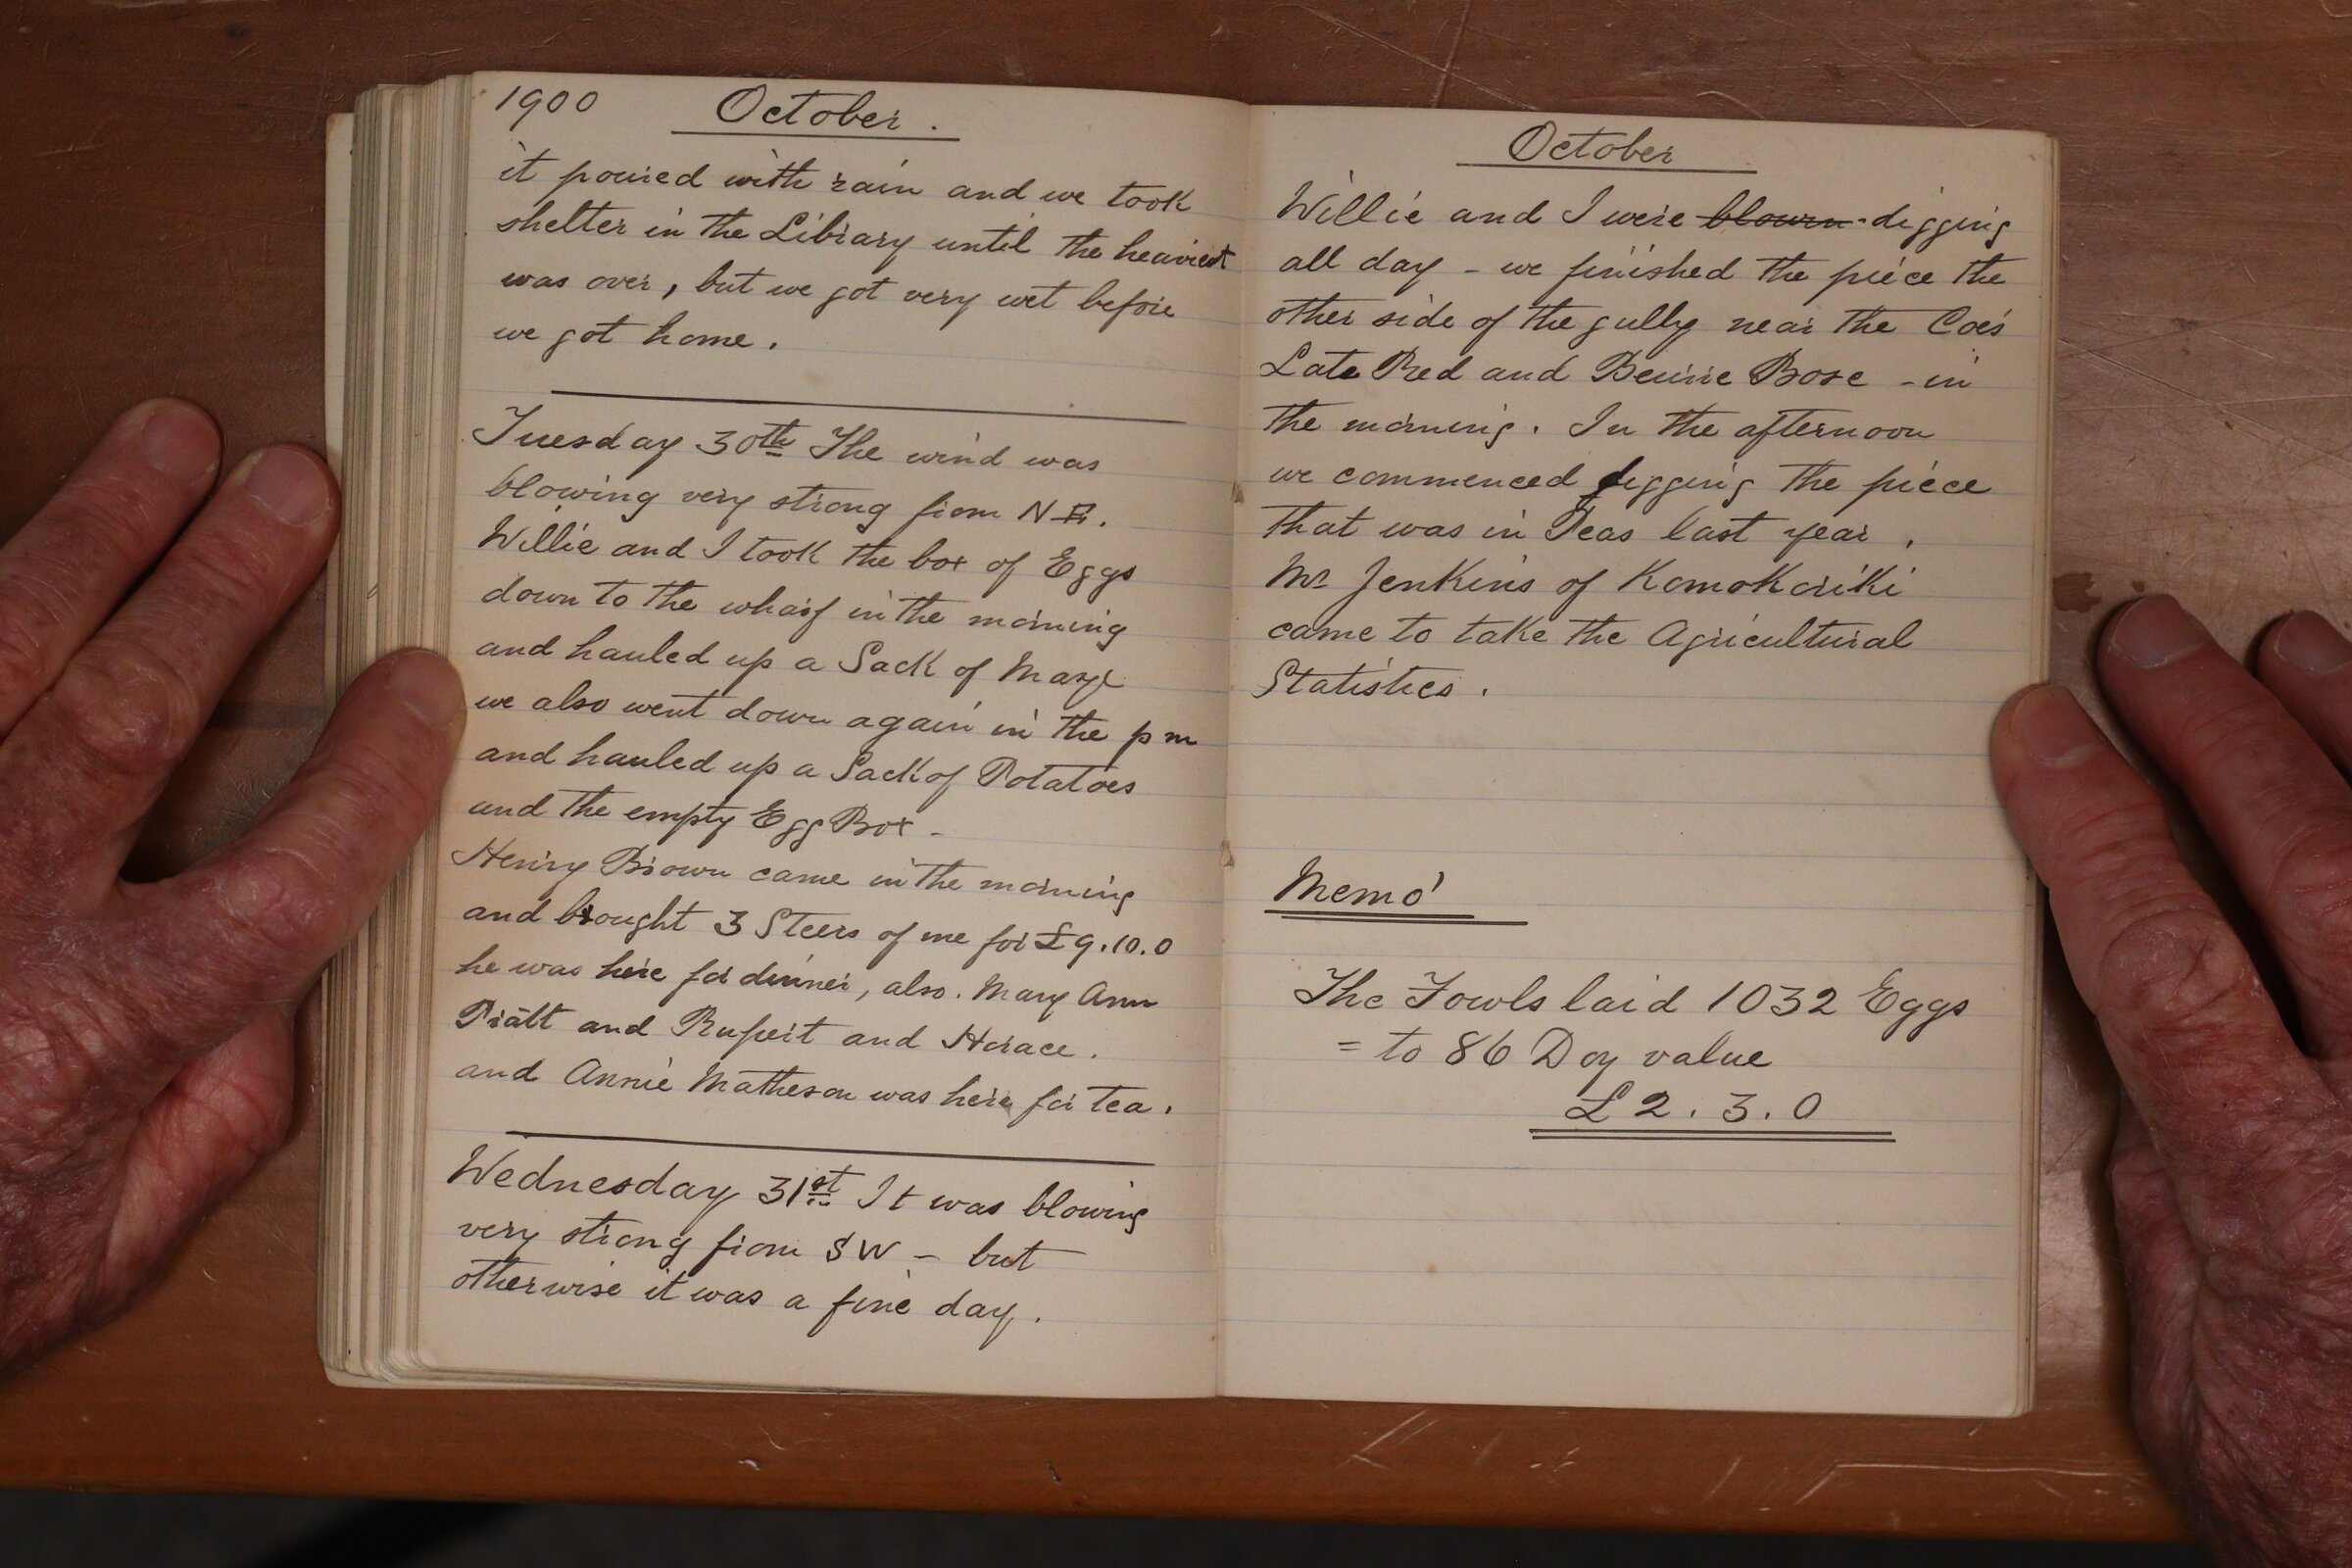 1900 October.
it poured with rain and we took
shelter in the Library until the heaviest
was over, but we got very wet before
we got home.
Tuesday 30th The wind was
blowing very strong from N E.
Willie and I took the box of Eggs
down to the wharf in the morning
and hauled up a Sack of Maze
we also went down again in the p m
and hauled up a Sack of Potatoes
and the empty Egg Box -
Henry Brown came in the morning
and brought 3 Steers of me for £9.10.0
he was here for dinner, also. Mary Ann
Pratt and Rupert and Horace.
and Annie Matheson was here for tea.
Wednesday 31st It was blowing
very strong from S W - but
otherwise it was a fine day.
October
Willie and I were blown digging
all day - we finished the piece the
other side of the gully near the Coes
Late Red and Beurre Bosc - in
the morning. In the afternoon
we commenced digging the piece
that was in Peas last year.
Mr Jenkins of Komokoriki
came to take the Agricultural
Statistics.
Memo
The Fowls laid 1032 Eggs
= to 86 Doz value
£2.3.0